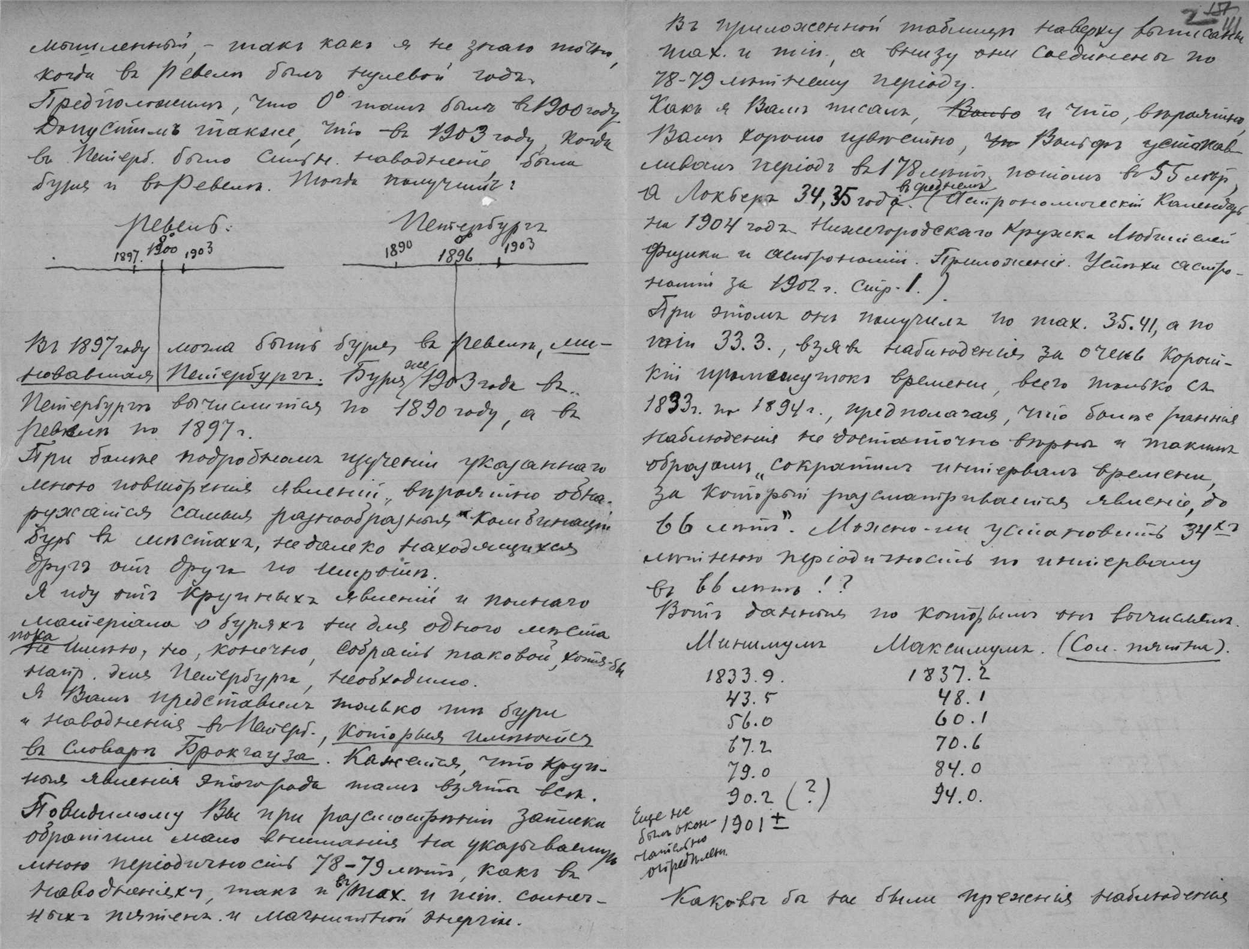 мышленный, – такъ какъ я не знаю точно,
когда въ Ревелѣ былъ нулевой годъ.
Предположимъ, что 0° тамъ былъ въ 1900 году
Допустимъ также, что въ 1903 году, когда
въ Петерб. было сильн. наводненіе, была
буря и въ Ревелѣ. Тогда получимъ:
Ревель. Петербургъ
1897 1900 1903 1890 1896 1903
Въ 1897 году могла быть буря въ Ревелѣ, ми-
новавшая Петербургъ. Буря же 1903 года въ
Петербургѣ вычислится по 1890 году, а въ
Ревелѣ по 1897 г.
При болѣе подробномъ изученіи указаннаго
мною повторенія явленій, вѣроятно обна-
ружатся самыя разнообразныя комбинаціи
бурь въ мѣстахъ, недалеко находящихся
другъ отъ друга по широтѣ.
Я иду отъ крупныхъ явленій и полнаго
матеріала о буряхъ ни для одного мѣста
пока
не имѣю, но, конечно, собрать таковой, хотя-бы
напр. для Петербурга, необходимо.
Я Вамъ представилъ только тѣ бури
и наводненія въ Петерб., которыя имѣются
въ словарѣ Брокгауза. Кажется, что круп-
ныя явленія этого рода тамъ взяты всѣ.
Повидимому Вы при разсмотрѣніи записки
обратили мало вниманія на указываемую
мною періодичность 78-79 лѣтъ, какъ въ
наводненіяхъ, такъ и въ max. и min. солнеч-
ныхъ пятенъ и магнитной энергіи.
2 151
111
Въ приложенной таблицѣ наверху выписаны
max. и min., а внизу они соединены по
78-79 лѣтнему періоду.
Какъ я Вамъ писалъ, и что, вѣроятно,
Вамъ хорошо извѣстно, Вольфъ устанав-
ливалъ періодъ въ 178 лѣтъ, потомъ въ 55 лѣтъ,
въ среднемъ
а Локьеръ 34,35 года. (Астрономическій Календарь
на 1904 годъ Нижегородскаго Кружка Любителей
Физики и астрономіи. Приложеніе. Успѣхи астро-
номіи за 1902 г. стр. 1.)
При этомъ онъ получилъ по max. 35.41, а по
min 33.3., взявъ наблюденія за очень корот-
кій промежутокъ времени, всего только съ
1833 г. по 1894 г., предполагая, что болѣе раннія
наблюденія не достаточно вѣрны и такимъ
образомъ „сократилъ интервалъ времени,
за который разсматривается явленіе, до
66 лѣтъ". Можно-ли установить 34хъ
лѣтнюю періодичность по интервалу
въ 66 лѣтъ!?
Вотъ данныя по которымъ онъ вычислялъ.
Минимумъ Максимумъ. (Сол. пятна).
1833.9. 1837.2
43.5 48.1
56.0 60.1
67.2 70.6
79.0 84.0
90.2 (?) 94.0.
1901 ±
Еще не
былъ окон-
чательно
опредѣленъ
Каковы бы ни были прежнія наблюденія